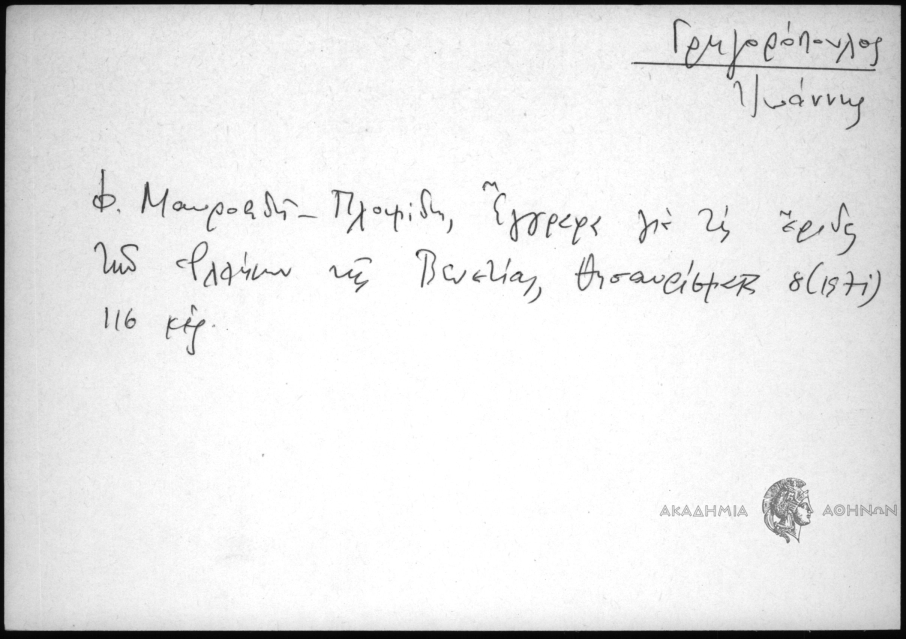 Γρηγορόπουλος
Ἰωάννης
Φ. Μαυροειδῆ-Πλουμίδη, Ἔγγραφα γιὰ τὶς ἔριδες
τῶν Ἑλλήνων τῆς Βενετίας, Θησαυρίσματα 8 (1971)
116 κἑξ.
ΑΚΑΔΗΜΙΑ ΑΘΗΝΩΝ